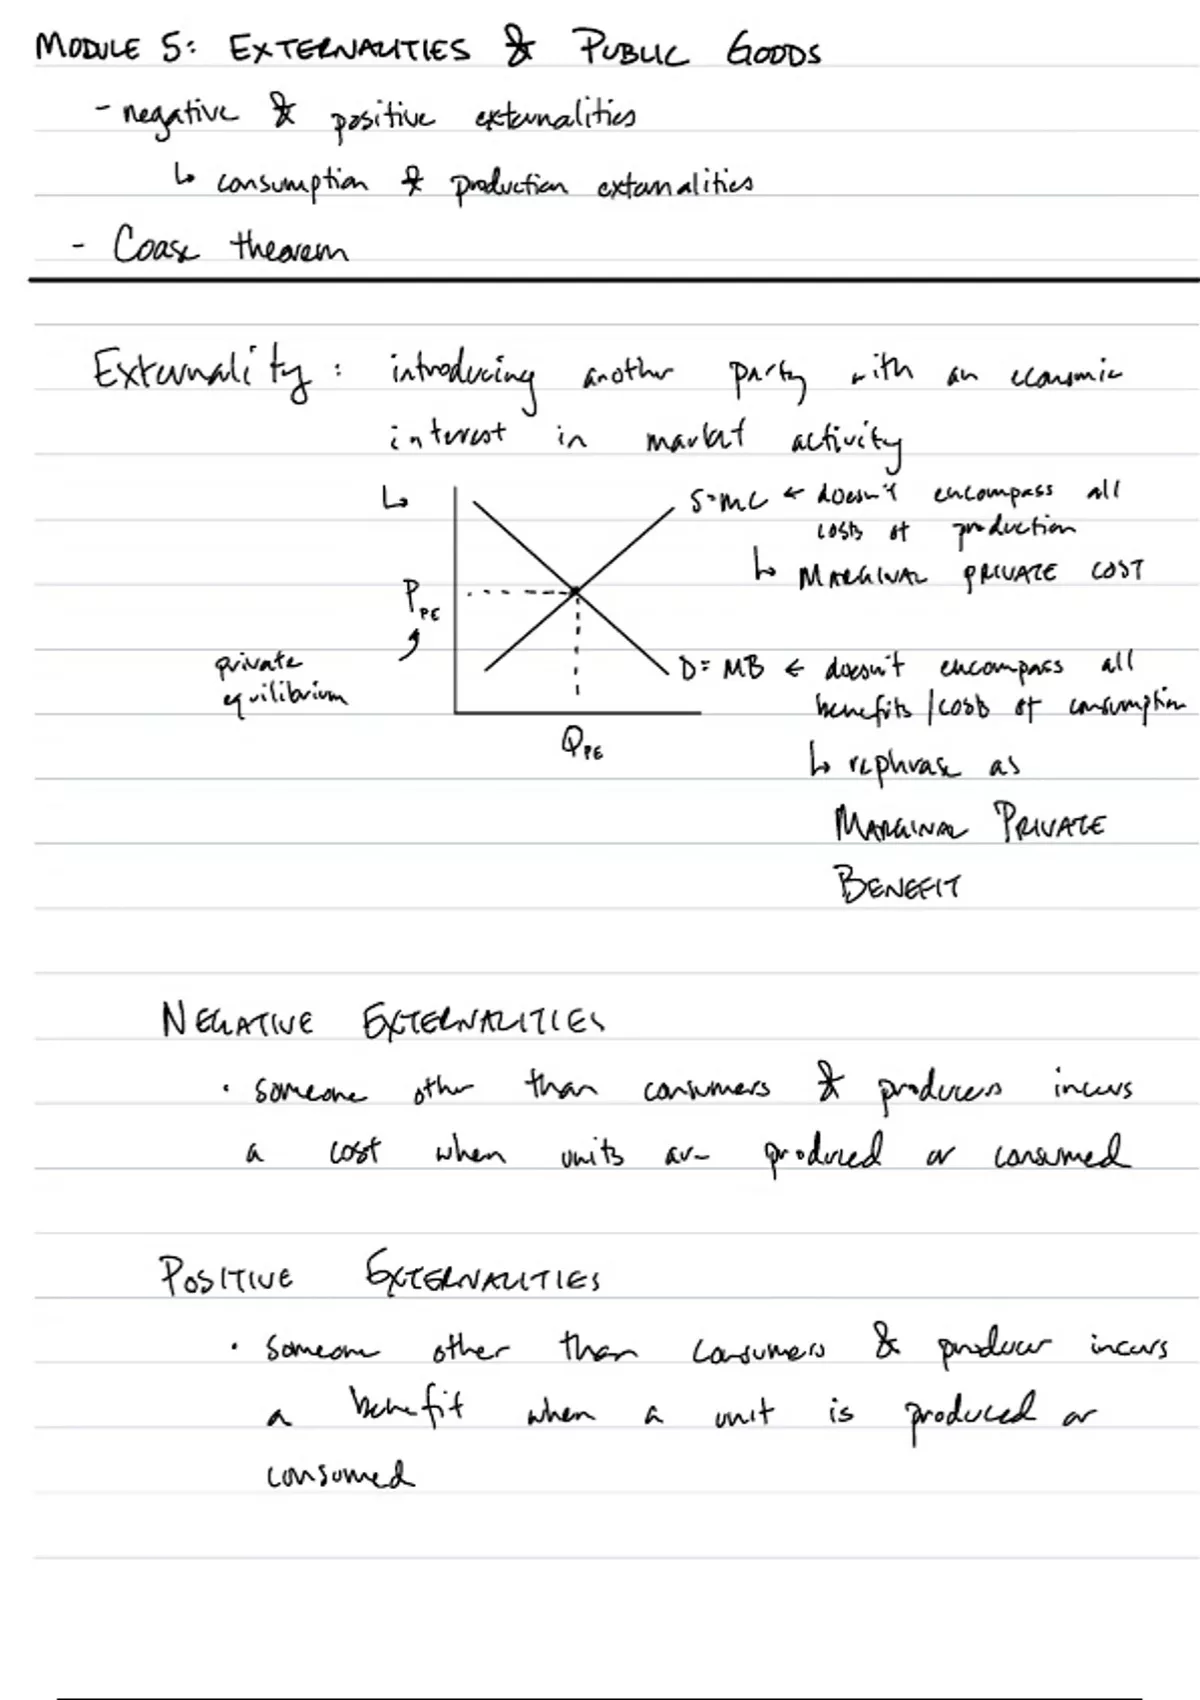 MODULE 5: EXTERNALITIES & PUBLIC GOODS
- negative & positive externalities
↳ consumption & production externalities
- Coase theorem
Externality: introducing another party with an economic
interest in market activity
↳
S=MC ← doesn't encompass all
costs of production
↳ MARGINAL PRIVATE COST
P_PE
private
equilibrium
D= MB ← doesn't encompass all
benefits/costs of consumption
Q_PE
↳ rephrase as
MARGINAL PRIVATE
BENEFIT
NEGATIVE EXTERNALITIES
• someone other than consumers & producers incurs
a cost when units are produced or consumed
POSITIVE EXTERNALITIES
• someone other than consumers & producer incurs
a benefit when a unit is produced or
consumed